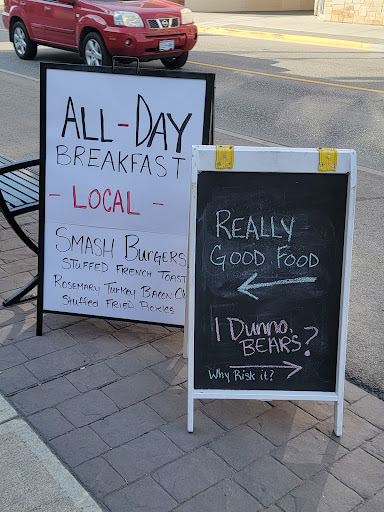 ALL-DAY
BREAKFAST
- LOCAL -
SMASH BURGERS
STUFFED FRENCH TOAST
ROSEMARY TURKEY BACON
Stuffed FRIED PICKLES
REALLY
GOOD FOOD
I DUNNO,
BEARS?
WHY RISK IT?